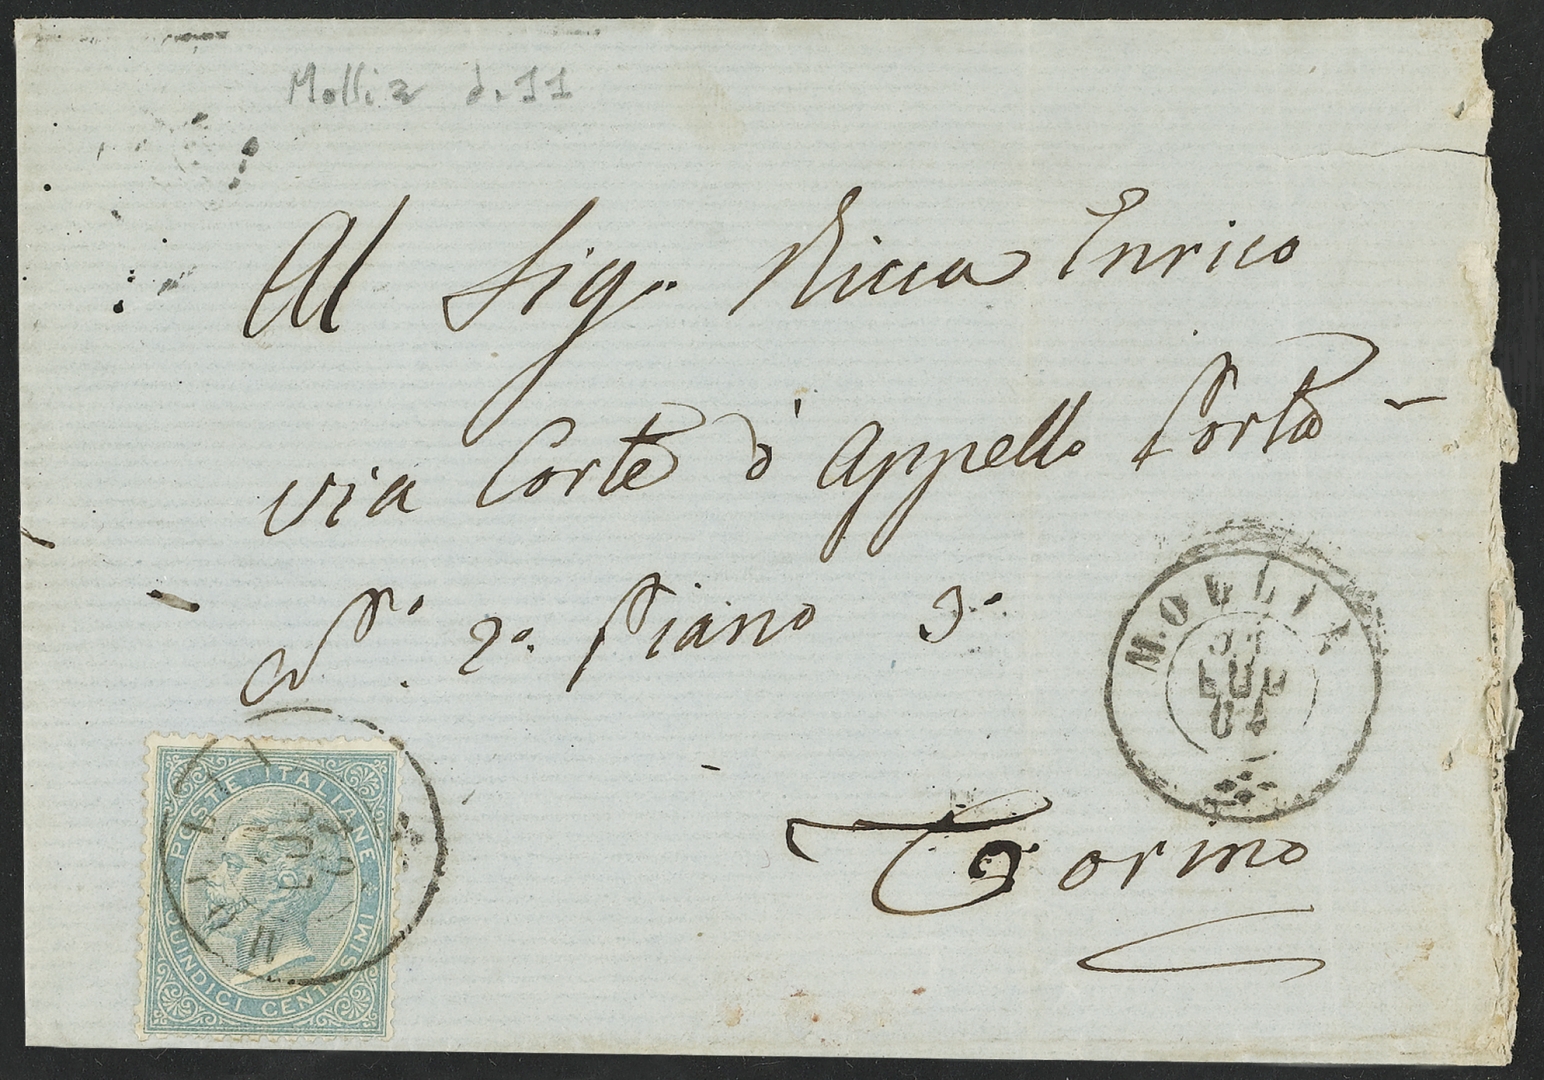 Mollia d. 11
Al Sig. Ricca Enrico
via Corte d'Appello Porta
N.º 2º Piano 3º
MOLLIA
LUG
64
Torino
POSTE ITALIANE
QUINDICI CENTESIMI